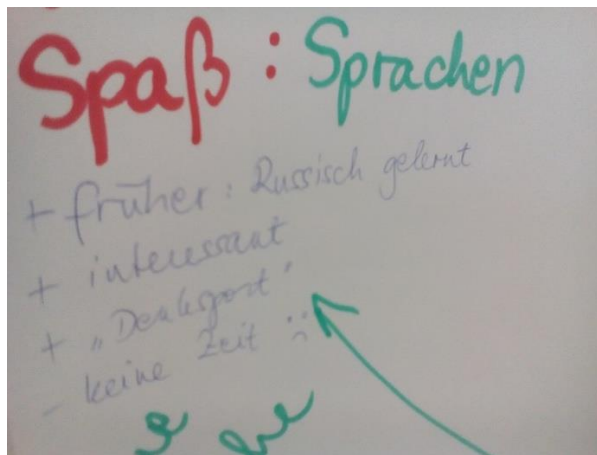 Spaß : Sprachen
+ früher : Russisch gelernt
+ interessant
+ „Denksport"
- keine Zeit :(